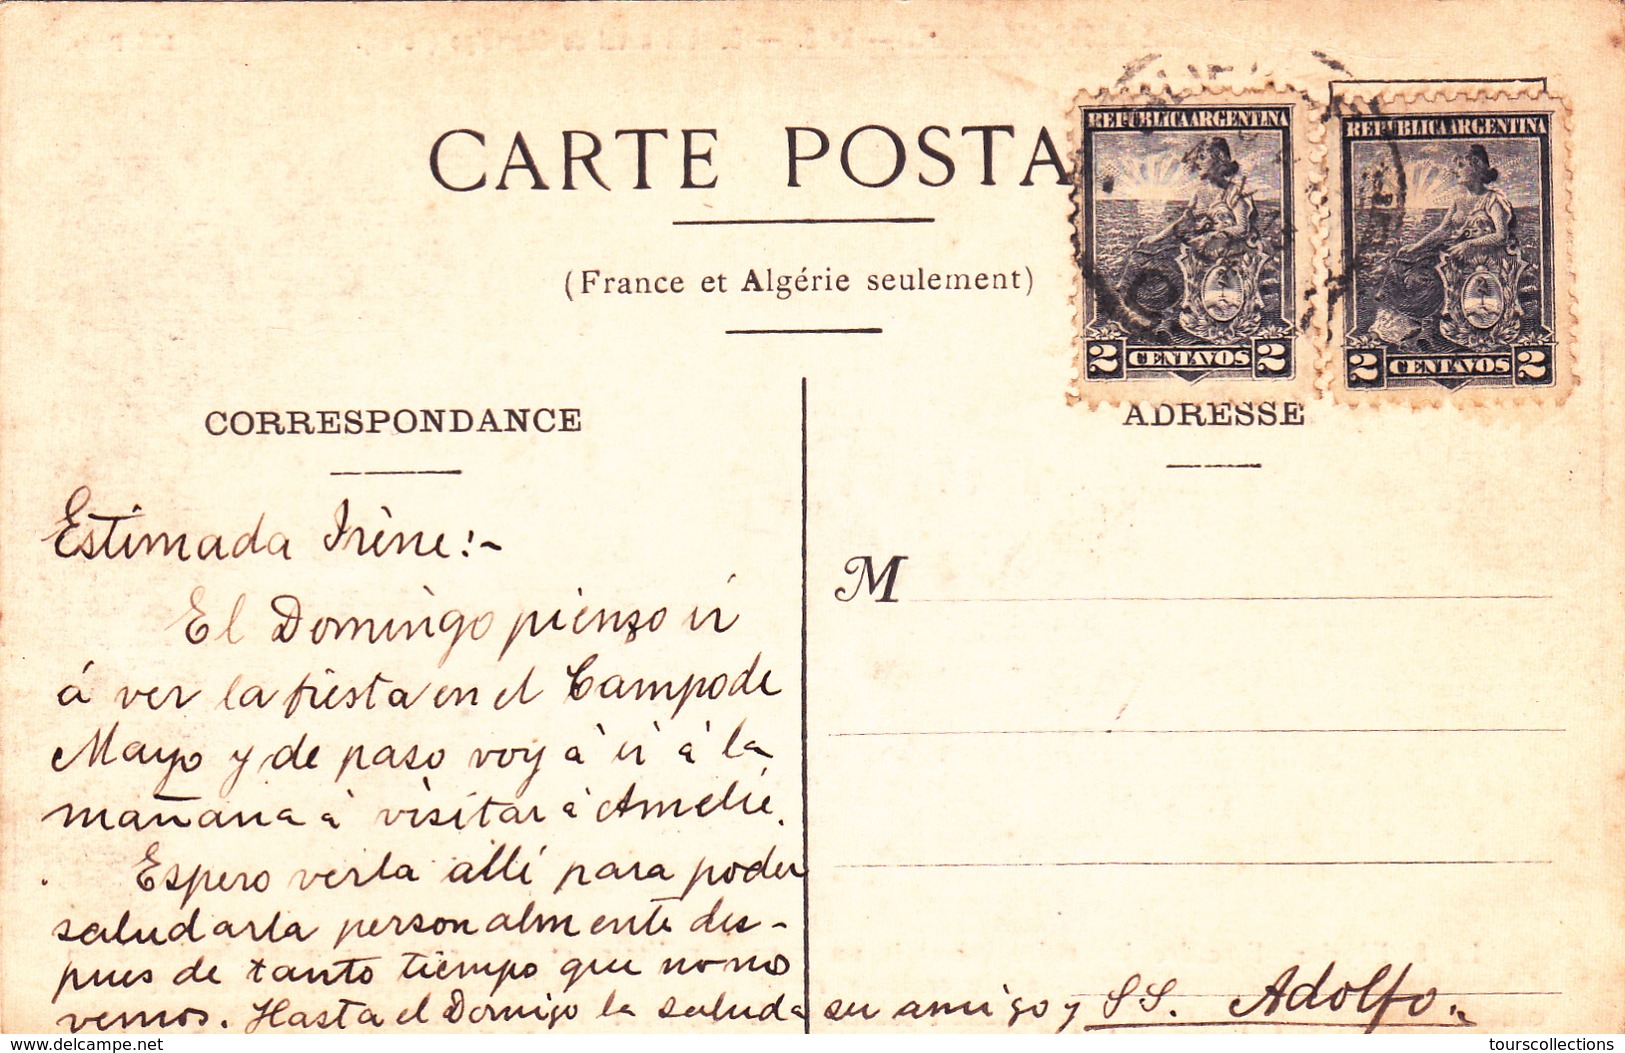 CARTE POSTA
(France et Algérie seulement)
REPUBLICA ARGENTINA
2 CENTAVOS 2
REPUBLICA ARGENTINA
2 CENTAVOS 2
CORRESPONDANCE
Estimada Irène:-
El Domingo pienso ir
á ver la fiesta en el Campo de
Mayo y de paso voy á ir á la
mañana á visitar á Amelie.
Espero verla alli para poder
saludarla personalmente des-
pues de tanto tiempo que no nos
vemos. Hasta el Domigo la saluda su amigo y SS. Adolfo.
ADRESSE
M
www.delcampe.net
tourscollections